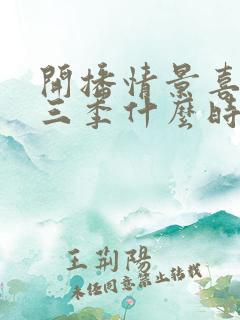 開播情景喜
三季什麼時
王荊陽
未经同意禁止转载